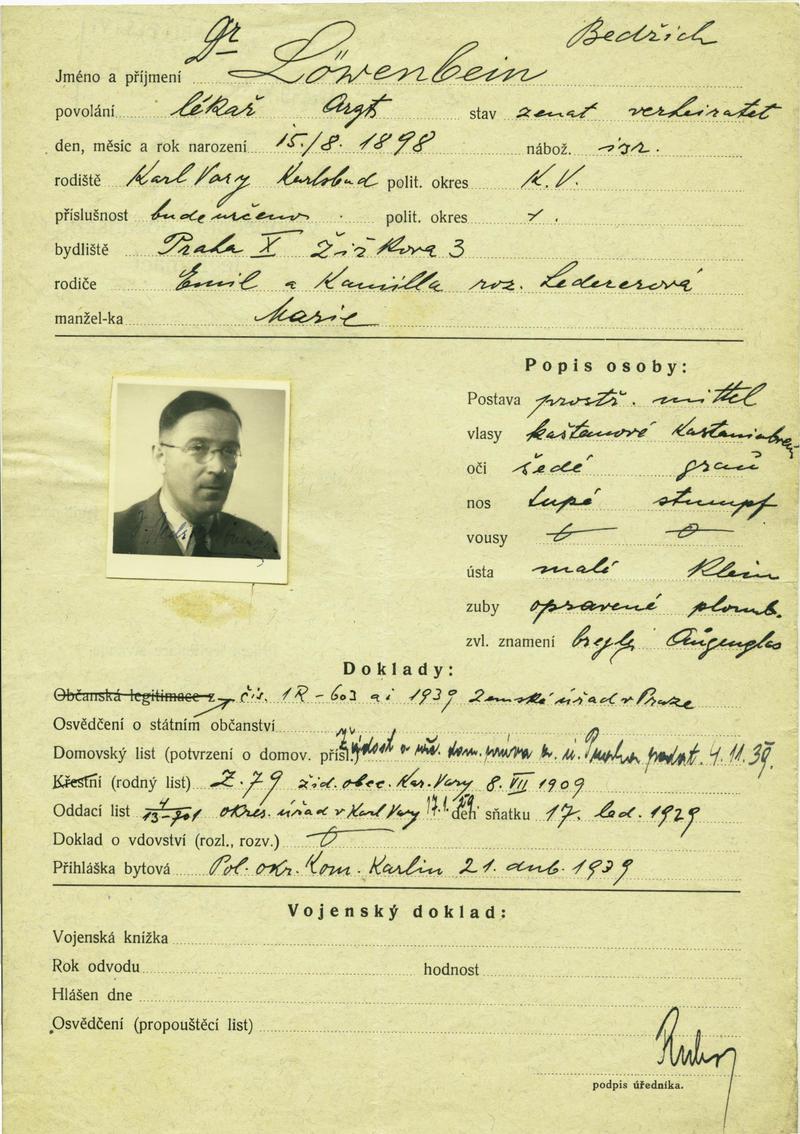 Dr Bedřich
Jméno a příjmení Löwenbein
povolání lékař Arzt stav ženat verheiratet
den, měsíc a rok narození 15./8. 1898 nábož. isr.
rodiště Karl Vary Karlsbad polit. okres K.V.
příslušnost bude určeno polit. okres
bydliště Praha X Žižkova 3
rodiče Emil a Kamilla roz. Ledererová
manžel-ka Marie
Popis osoby:
Postava prostř. mittel
vlasy kaštanové
oči šedé grau
nos tupé stumpf
vousy
ústa malé klein
zuby opravené plomb.
zvl. znamení brejle Augenglas
Doklady:
Občanská legitimace z čís. 1R-603 ai 1939 Zemské úřad v Praze
Osvědčení o státním občanství
Domovský list (potvrzení o domov. přísl.) Žádost o dom. práva podat. 4.11.39.
Křestní (rodný list) Z.79 žid. obec. Kar. Vary 8. VII 1909
Oddací list okres. úřad v Karl Vary 17.1.29. den sňatku 17. led. 1929
Doklad o vdovství (rozl., rozv.)
Přihláška bytová Pol. okr. Kom. Karlin 21. dub. 1939
Vojenský doklad:
Vojenská knížka
Rok odvodu hodnost
Hlášen dne
Osvědčení (propouštěcí list)
podpis úředníka.